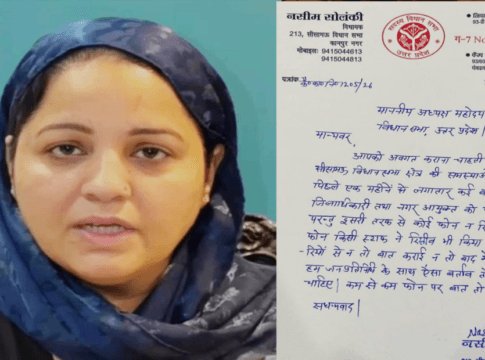 नसीम सोलंकी
विधायक
213, सीसामऊ विधान सभा
कानपुर नगर
मोबाइल: 9415044613
9415044813
सदस्य विधान सभा
उत्तर प्रदेश
पत्रांक
1205/26
माननीय अध्यक्ष महोदय
विधानसभा, उत्तर प्रदेश
मान्यवर,
आपको अवगत कराना चाहती
सीसामऊ विधानसभा क्षेत्र की समस्याओं
पिछले एक महीने से लगातार कई
जिलाधिकारी तथा नगर आयुक्त को
परन्तु दूसरी तरफ से कोई फोन न
फोन किसी स्टाफ ने रिसीव भी किया
न तो बात कराई न तो बाद में
हम जनप्रतिनिधि के साथ ऐसा बर्ताव
चाहिए। कम से कम फोन पर बात तो
सधन्यवाद।